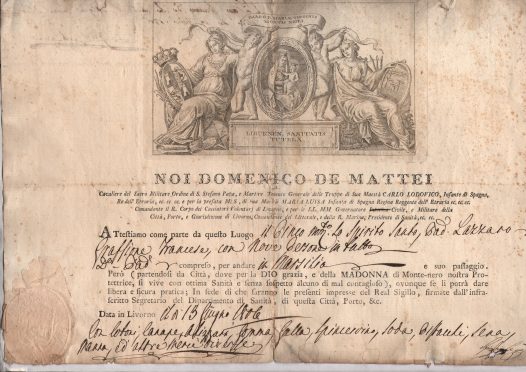 LIBURNEN. SANITATIS
TUTELA
NOI DOMENICO DE MATTEI
Cavaliere del Sacro Militare Ordine di S. Stefano Papa, e Martire Tenente Generale delle Truppe di Sua Maestà CARLO LODOVICO, Infante di Spagna,
Re dell'Etruria, ec. ec. ec. e per la prefata M.S., di sua Madre MARIA LUISA Infanta di Spagna Regina Reggente dell'Etruria ec. ec. ec.
Comandante il R. Corpo dei Cacciatori Volontarj di Livorno, e per le LL. MM. Governatore Civile, e Militare della
Città, Porto, e Giurisdizione di Livorno, Comandante del Littorale, e della R. Marina, Presidente di Sanità, ec. ec. ec.
Attestiamo come parte da questo Luogo il Lo Spirito Santo, Pad. Lazzaro
Francese, con Nove Persone in tutto
compreso, per andare in Marsilia e suo passaggio.
Però partendosi da Città, dove per la DIO grazia, e della MADONNA di Monte-nero nostra Protettrice,
si vive con ottima Sanità e senza sospetto alcuno di mal contagioso, ovunque se li potrà dare
libera e sicura pratica; In fede di che saranno le presenti impresse col Real Sigillo, firmate dall'infrascritto
Segretario del Dipartimento di Sanità, di questa Città, Porto, &c.
Data in Livorno 13 Giugno 1806
Con Cotoni Canape, Gomma, Galla, Soda, Sena
ed altre merci